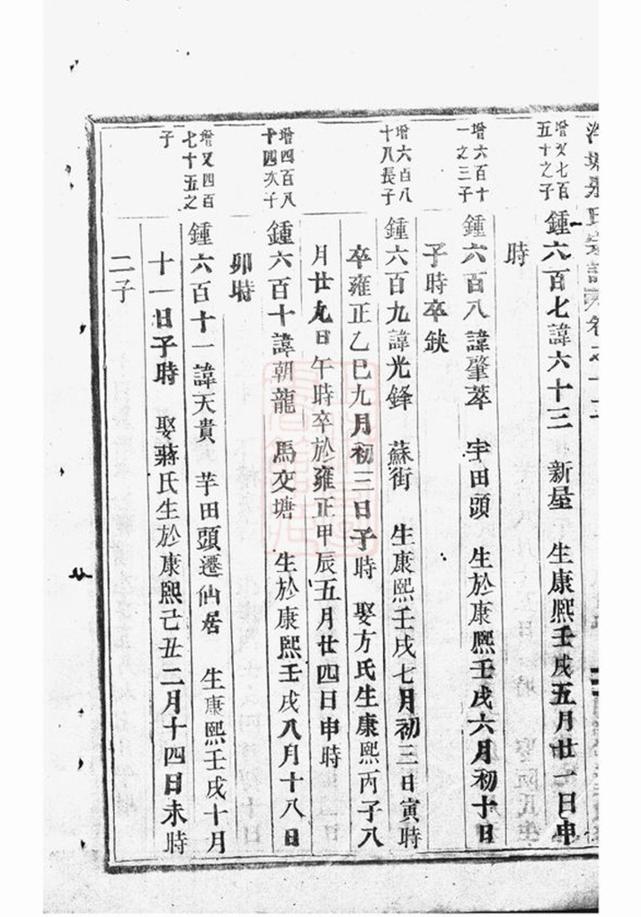 氏宗譜
增又七百
五十之子
鍾六百七諱六十三　新屋　生康熙壬戌五月廿一日申
時
增六百十
一之三子
鍾六百八諱肇萃　芋田頭　生於康熙壬戌六月初十日
子時卒缺
增六百八
十八長子
鍾六百九諱光鋒　蘇街　生康熙壬戌七月初三日寅時
卒雍正乙巳九月初三日子時　娶方氏生康熙丙子八
月廿九日午時卒於雍正甲辰五月廿四日申時
增四百八
十四次子
鍾六百十諱朝龍　馬交塘　生於康熙壬戌八月十八日
卯時
增又四百
七十五之
子
鍾六百十一諱天貴　芋田頭遷仙居　生康熙壬戌十月
十一日子時　娶蔣氏生於康熙己丑二月十四日未時
二子